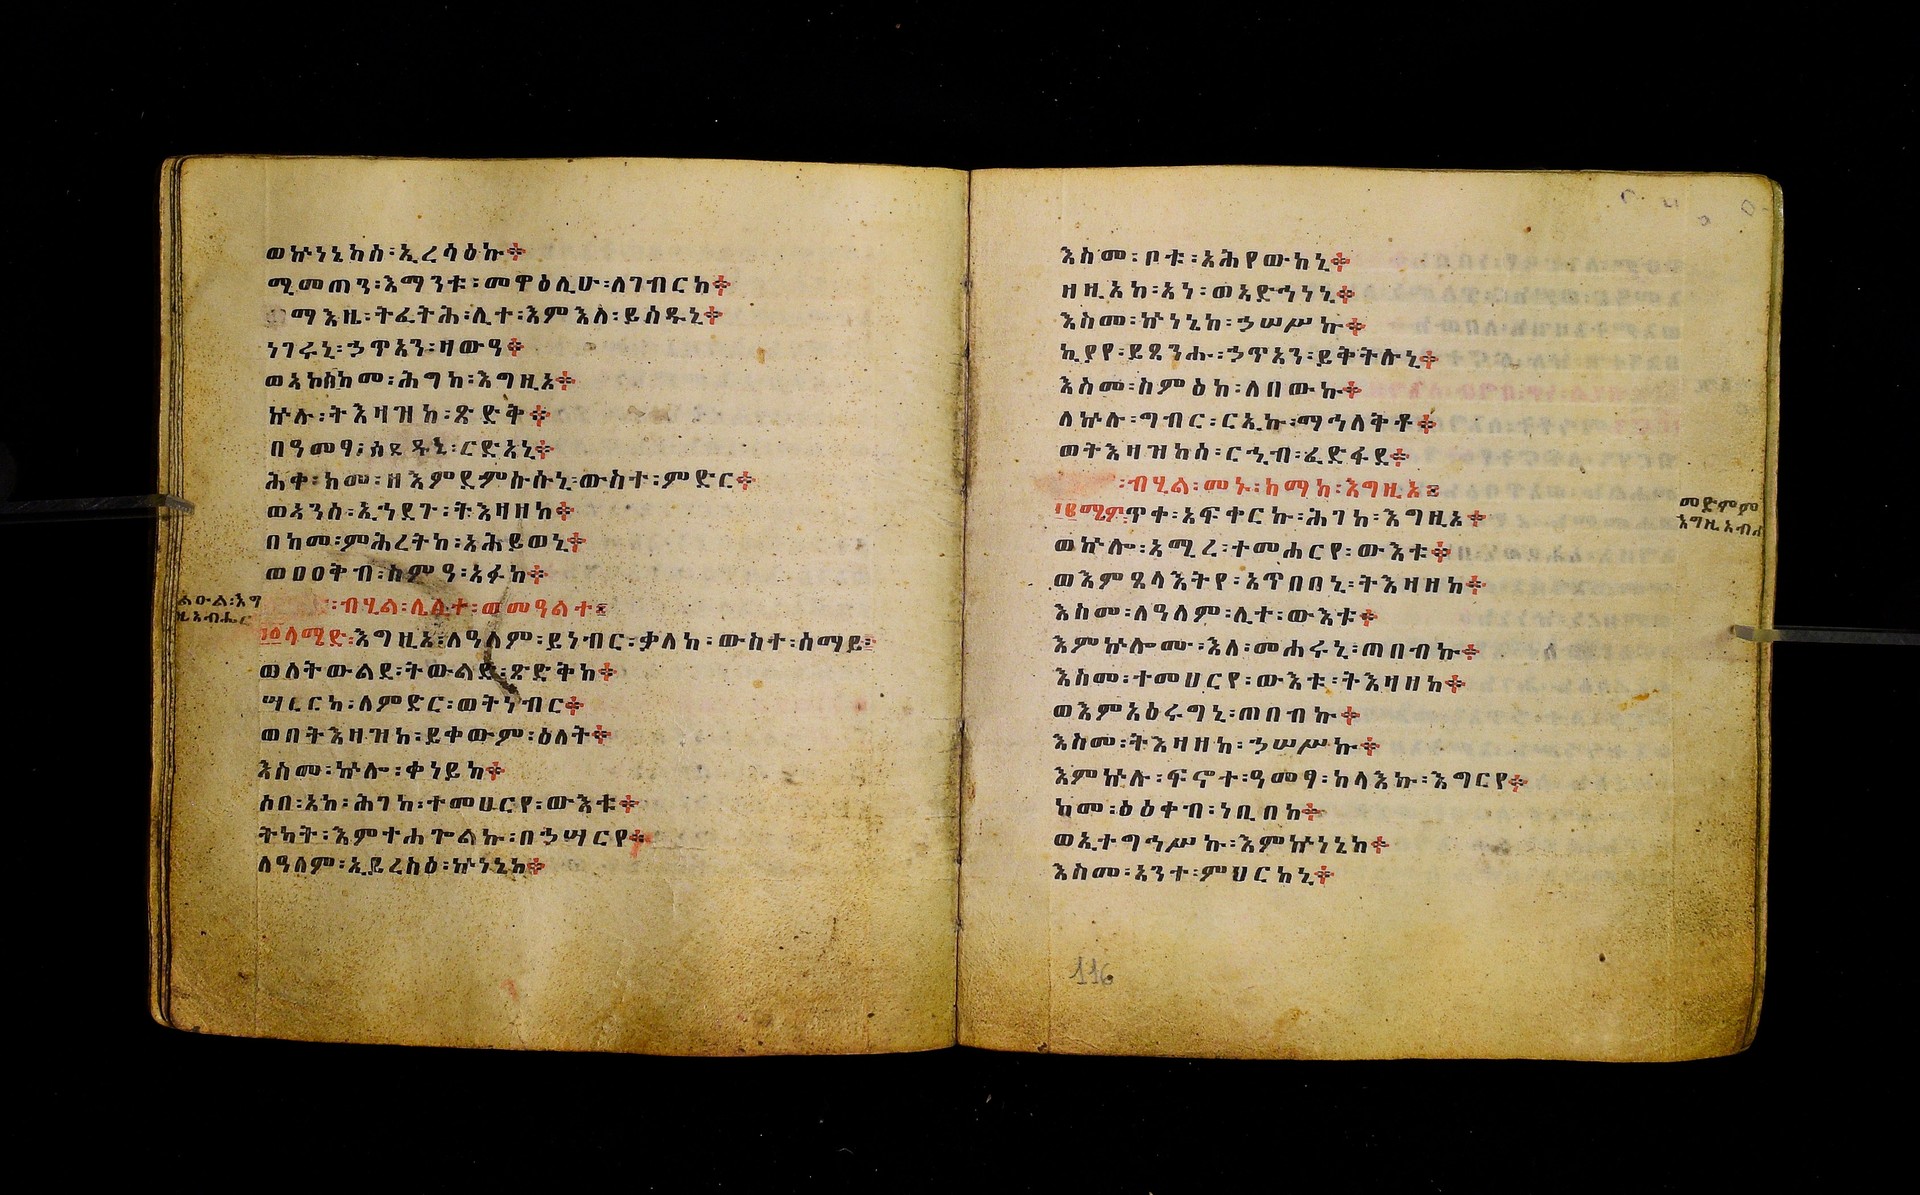 ወኵነኔከሰ፡ኢረሳዕኩ፨
ሚመጠን፡እማንቱ፡መዋዕሊሁ፡ለገብርከ፨
ማእዜ፡ትፈትሕ፡ሊተ፡እምእለ፡ይሰዱኒ፨
ነገሩኒ፡ኃጥአን፡ዛውዓ፨
ወአኮሰከመ፡ሕግከ፡እግዚአ፨
ኵሉ፡ትእዛዝከ፡ጽድቅ፨
በዓመፃ፡ሰደዱኒ፡ርድአኒ፨
ሕቀ፡ከመ፡ዘእምደምሰሱኒ፡ውስተ፡ምድር፨
ወአንሰ፡ኢኀደጉ፡ትእዛዘከ፨
በከመ፡ምሕረትከ፡አሕይወኒ፨
ወዐዐቅብ፡ስምዓ፡አፉከ፨
ልዑል፡እግ
ዚአብሔር
፡ብሂል፡ሌሊተ፡ወመዓልተ፤
፲፪ላሜድ፡እግዚአ፡ለዓለም፡ይነብር፡ቃልከ፡ውስተ፡ሰማይ፡
ወለትውልደ፡ትውልድ፡ጽድቅከ፨
ሣረርካ፡ለምድር፡ወትነብር፨
ወበትእዛዝከ፡ይቀውም፡ዕለት፨
እስመ፡ኵሎ፡ቀነይከ፨
ሶበ፡አኮ፡ሕገከ፡ተመሀርየ፡ውእቱ፨
ትካት፡እምተሐጐልኩ፡በኃሣርየ፨
ለዓለም፡ኢይረስዕ፡ኵነኔከ፨
እስመ፡ቦቱ፡አሕየውከኒ፨
ዘዚአከ፡አነ፡ወአድኅነኒ፨
እስመ፡ኵነኔከ፡ኃሠሥኩ፨
ኪያየ፡ይጸንሑ፡ኃጥአን፡ይቅትሉኒ፨
እስመ፡ስምዕከ፡ለበውኩ፨
ለኵሉ፡ግብር፡ርኢኩ፡ማኅለቅቶ፨
ወትእዛዝከሰ፡ርኂብ፡ፈድፋደ፨
፡ብሂል፡መኑ፡ከማከ፡እግዚአ፤
፲፫ሜም፡ጥቀ፡አፍቀርኩ፡ሕገከ፡እግዚአ፨
መድምም
እግዚአብሔ
ወኵሎ፡አሚረ፡ተመሐርየ፡ውእቱ፨
ወእምጸላእትየ፡አጥበበኒ፡ትእዛዘከ፨
እስመ፡ለዓለም፡ሊተ፡ውእቱ፨
እምኵሎሙ፡እለ፡መሐሩኒ፡ጠበብኩ፨
እስመ፡ተመሀርየ፡ውእቱ፡ትእዛዘከ፨
ወእምአዕሩግኒ፡ጠበብኩ፨
እስመ፡ትእዛዘከ፡ኃሠሥኩ፨
እምኵሉ፡ፍኖተ፡ዓመፃ፡ከላእኩ፡እግርየ፨
ከመ፡ዕዕቀብ፡ነቢበከ፨
ወኢተግኅሥኩ፡እምኵነኔከ፨
እስመ፡አንተ፡ምህርከኒ፨
116